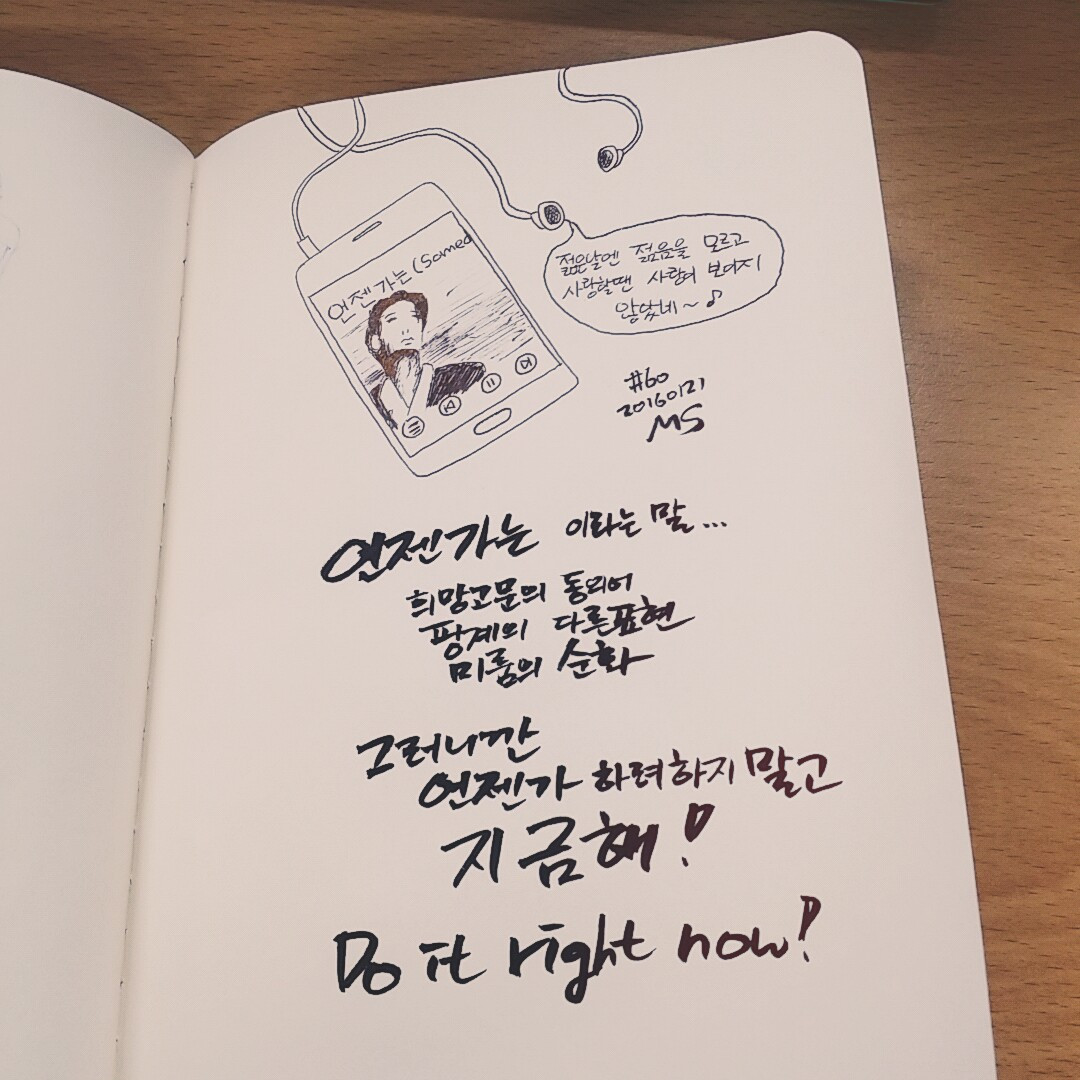 언젠가는 (Somed
젊은날엔 젊음을 모르고
사랑할땐 사랑이 보이지
않았네~♪
#60
20160121
MS
언젠가는 이라는 말...
희망고문의 동의어
핑계의 다른표현
미룸의 순화
그러니깐
언젠가 하려하지 말고
지금해!
Do it right now!